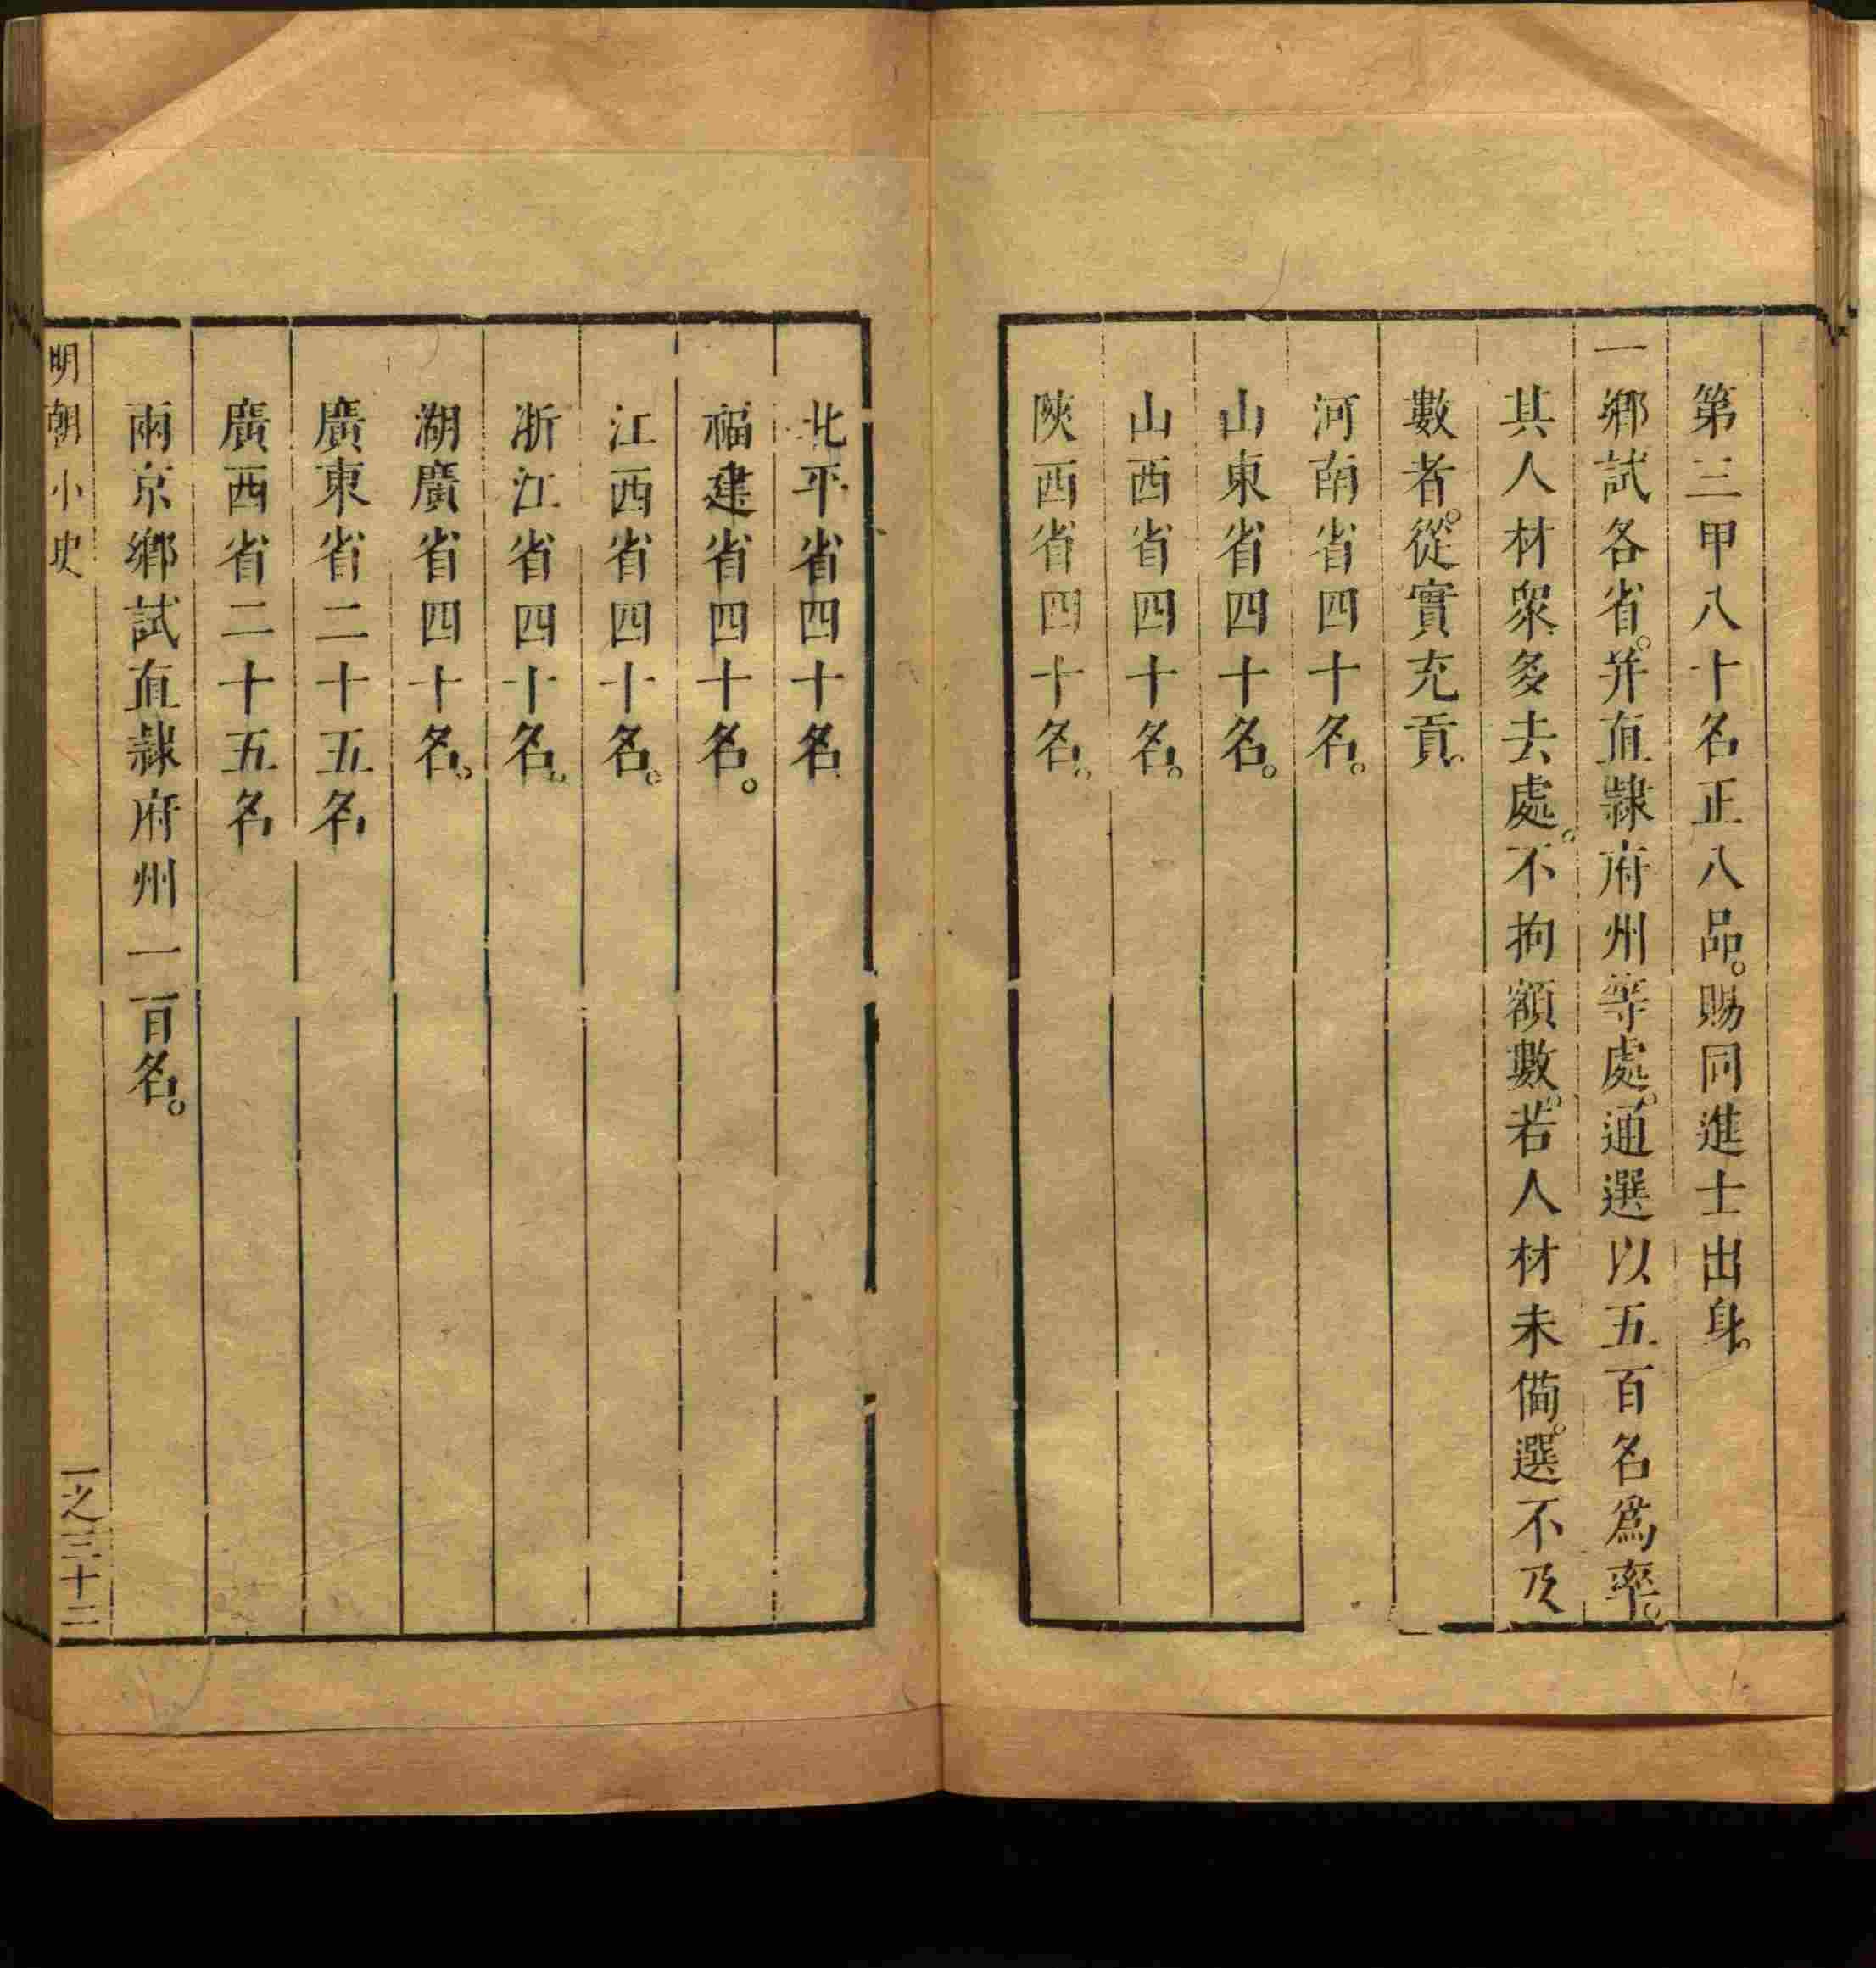 第三甲八十名正八品。賜同進士出身。
一鄉試各省。并直隸府州等處。通選以五百名爲率。
其人材衆多去處。不拘額數。若人材未備。選不及
數者。從實充貢。
河南省四十名。
山東省四十名。
山西省四十名。
陝西省四十名。
北平省四十名
福建省四十名。
江西省四十名。
浙江省四十名。
湖廣省四十名。
廣東省二十五名
廣西省二十五名
兩京鄉試直隸府州一百名。
明朝小史
一之三十二